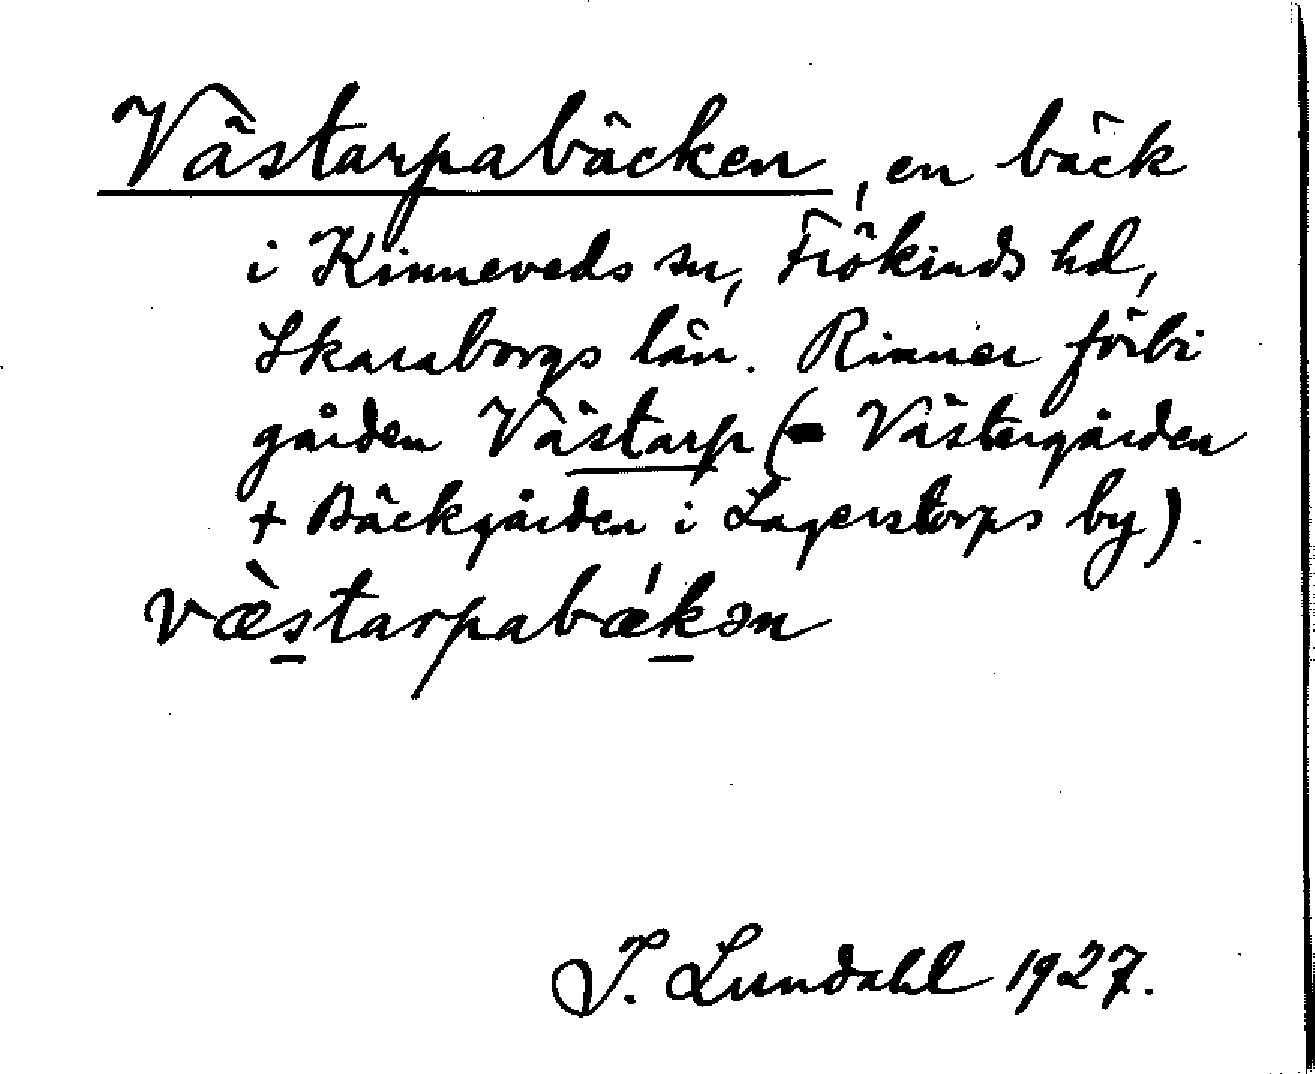 Västarpabäcken, en bäck
i Kinneveds sn, Frökinds hd,
Skaraborgs län. Rinner förbi
gården Västarp (= Västergården
+ Bäckgården i Lagerstorps by).
væ̀starpabækən
I. Lundahl 1927.